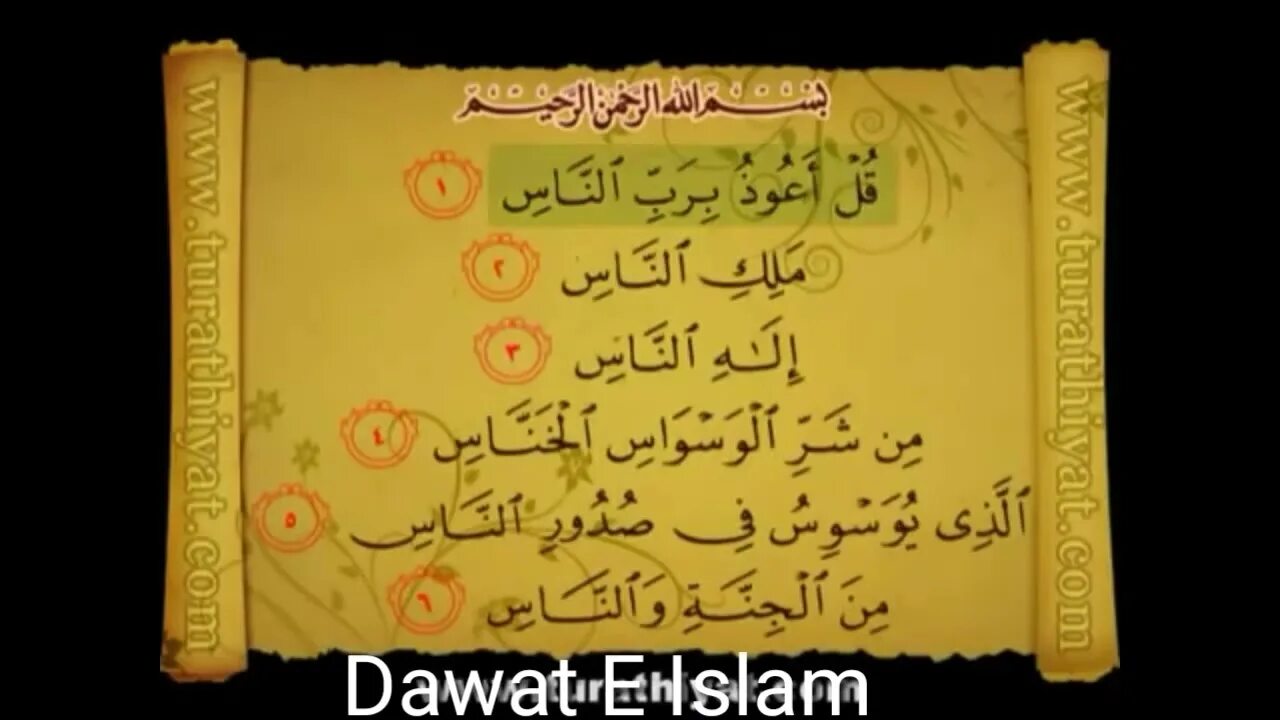 بسم الله الرحمن الرحيم
قُلۡ أَعُوذُ بِرَبِّ ٱلنَّاسِ ١
مَلِكِ ٱلنَّاسِ ٢
إِلَٰهِ ٱلنَّاسِ ٣
مِن شَرِّ ٱلۡوَسۡوَاسِ ٱلۡخَنَّاسِ ٤
ٱلَّذِى يُوَسۡوِسُ فِى صُدُورِ ٱلنَّاسِ ٥
مِنَ ٱلۡجِنَّةِ وَٱلنَّاسِ ٦
www.turathiyat.com
www.turathiyat.com
www.turathiyat.com
Dawat E Islam